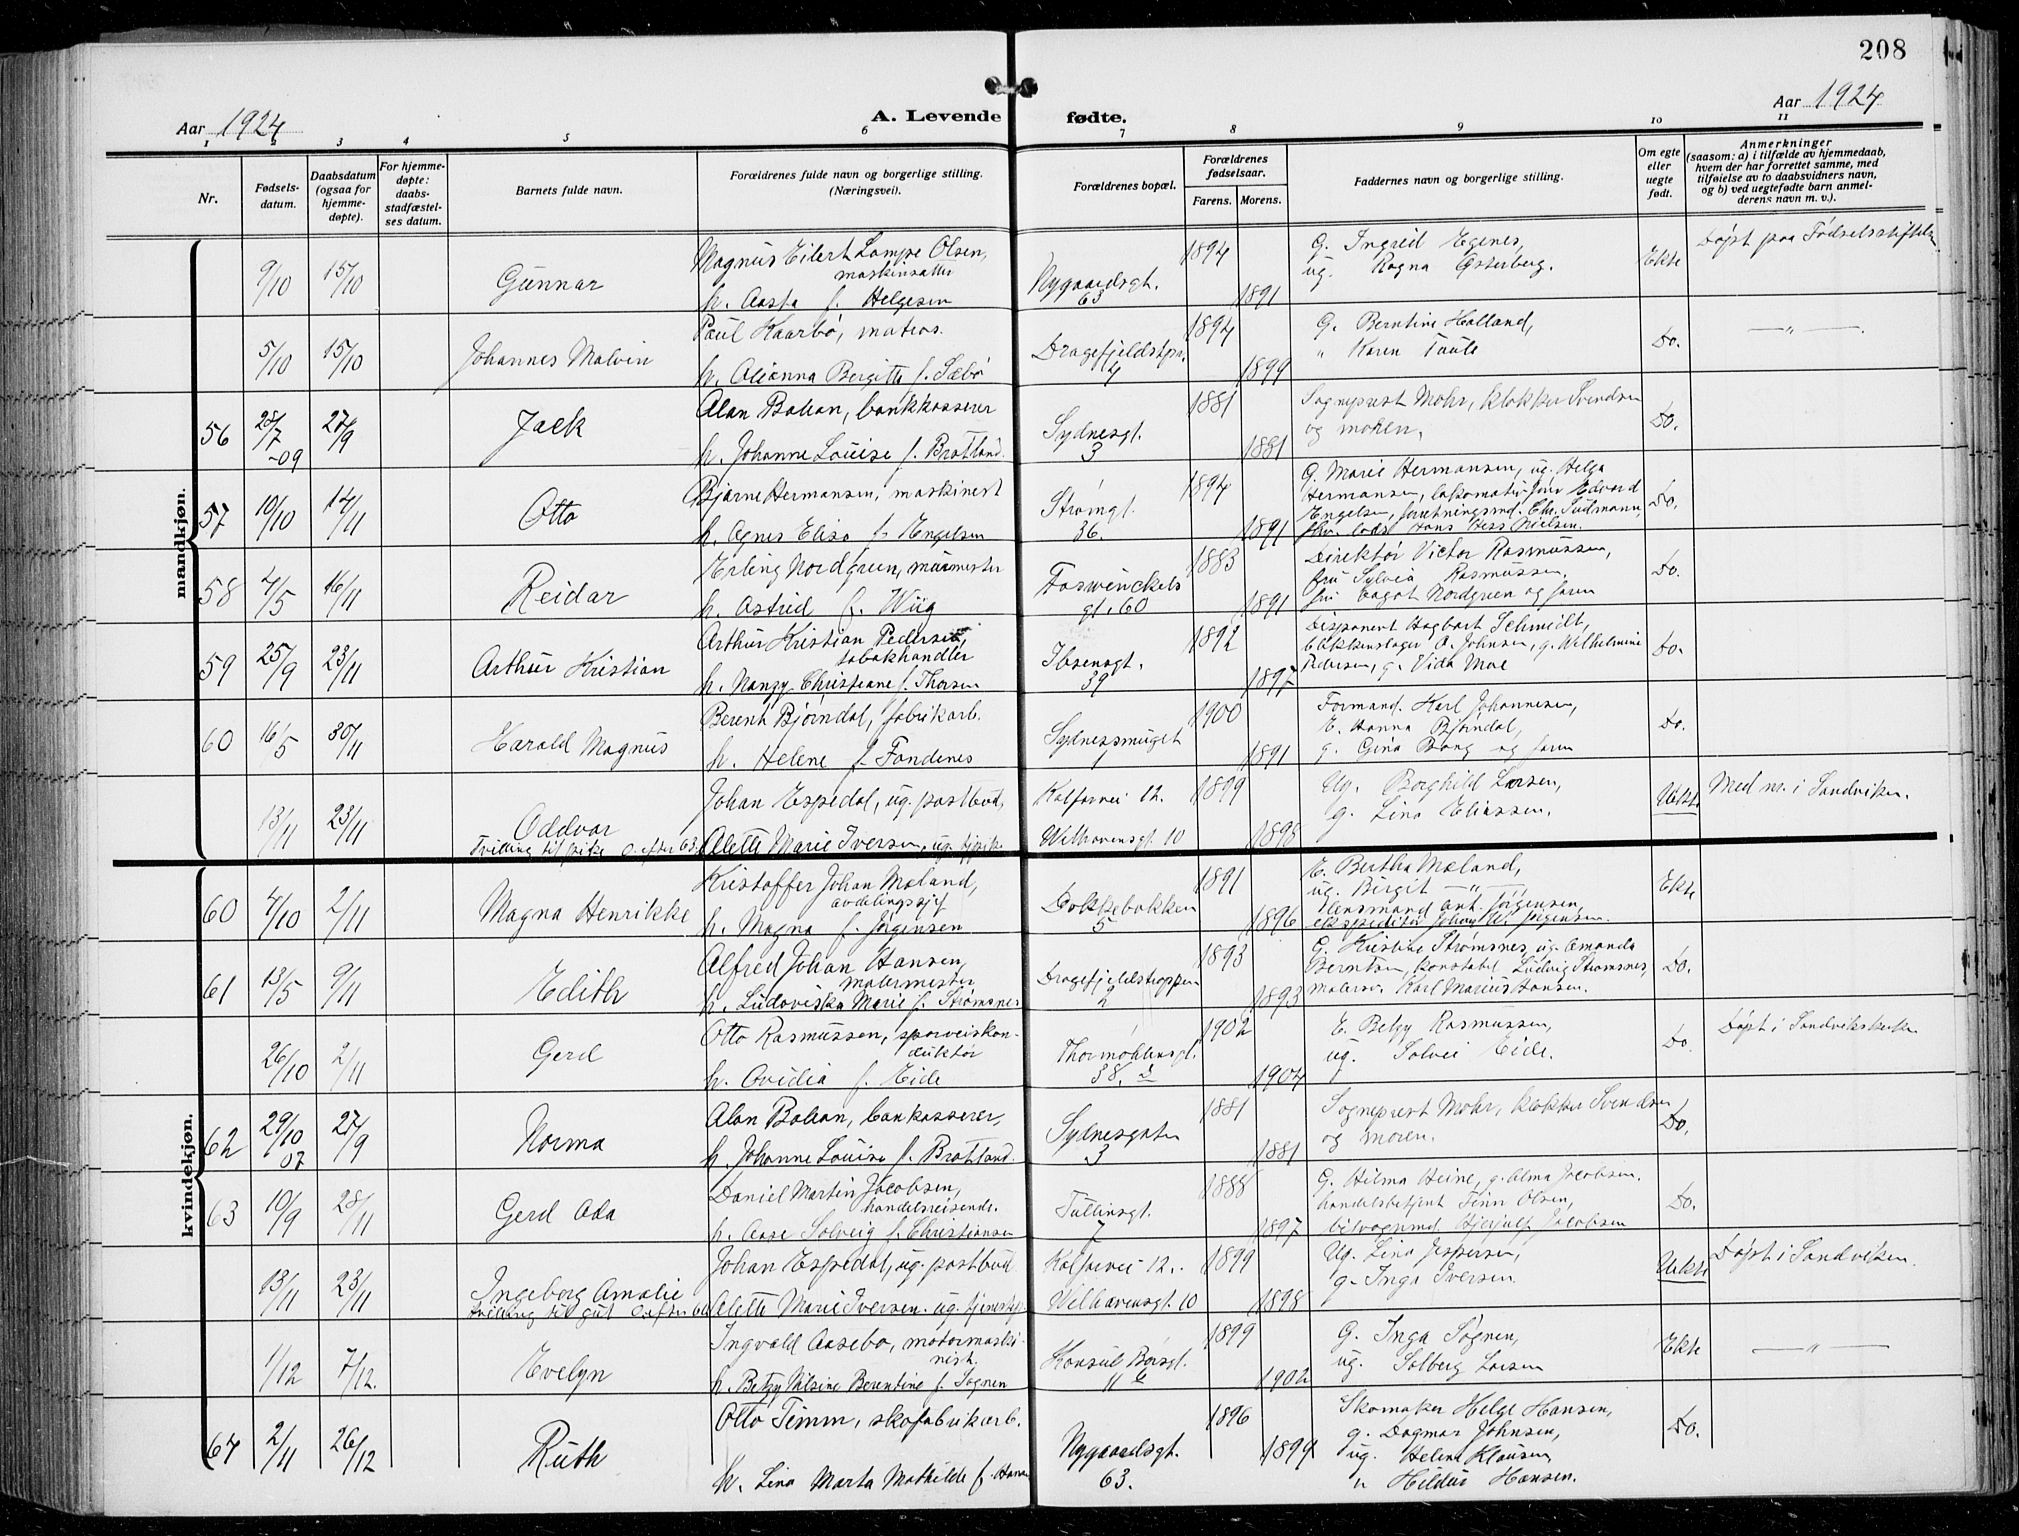 208
Aar 1924
A. Levende fødte.
Aar 1924
1 2 3 4 5 6 7 8 9 10 11
Nr.
Fødsels-
datum.
Daabsdatum
(ogsaa for
hjemme-
døpte).
For hjemme-
døpte:
daabs-
stadfæstel-
ses datum.
Barnets fulde navn.
Forældrenes fulde navn og borgerlige stilling.
(Næringsvei).
Forældrenes bopæl.
Forældrenes
fødselsaar.
Farens. Morens.
Faddernes navn og borgerlige stilling.
Om egte
eller
uegte
født.
Anmerkninger
(saasom: a) i tilfælde av hjemmedaab,
hvem der har forrettet samme, med
tilføielse av to daabsvidners navn,
og b) ved uegtefødte barn anmel-
derens navn m. v.).
mandkjøn.
9/10 15/10 Gunnar
Magnus Eilert Lampe Olsen,
maskinsætter
h. Aasta f. Helgesen
Nygaardsgt.
63
1894 1891
G. Ingrid Egenes,
ug. Ragna Østerberg.
Ekte
Døpt paa Fødselsstiftelse
5/10 15/10 Johannes Malvin
Paul Kaarbø, matros.
h. Alianna Bergitte f. Sæbø
Dragefjeldstpr.
4
1894 1899
G. Berntine Halland,
" Karen Taule
Do.
— " —
56 28/7 -09 27/9 Jack
Alan Bohan, bankkasserer
h. Johanne Louise f. Bratland.
Sydnesgt.
3
1881 1881
Sogneprest Mohr, klokker Svendsen
og moren.
Do.
57 10/10 14/11 Otto
Bjarne Hermansen, maskinist
h. Agnes Elisa f. Engelsen
Strømgt.
36.
1894 1891
G. Marie Hermansen, ug. Helga
Hermansen, Edvard
Engelsen, forretningsmd. Chr. Sudmann,
Hans Hess Nielsen.
Do.
58 4/5 16/11 Reidar
Erling Nordgreen, murmester
h. Astrid f. Wiig
Foswinckels
gt. 60
1883 1891
Direktør Victor Rasmussen,
fru Sylvia Rasmussen.
fru Dagot Nordgreen og faren
Do.
59 25/9 23/11 Arthur Kristian
Arthur Kristian Pedersen,
tobakhandler
h. Nanzy Christiane f. Thorsen
Ibsensgt.
39
1892 1897
Disponent Hagbart Schmidt,
blikkenslager O. Johnsen, g. Wilhelmine
Pedersen, g. Vida Moe
Do.
60 16/5 30/11 Harald Magnus
Berent Bjørndal, fabrikarb.
h. Helene f. Fondenes
Sydnessmuget
1
1900 1891
Formand Karl Johannesen,
E. Hanna Bjørndal,
g. Gina Bang og faren
Do.
13/11 23/11 Oddvar
Tvilling til pike o. efter 63.
Johan Espedal, ug. postbud,
Alette Marie Iversen, ug. tjpike
Kalfarvei 12.
Welhavensgt. 10
1899 1898
Ug. Borghild Larsen,
g. Lina Eliassen.
Uekte
Med nr. i Sandviken.
kvindekjøn.
60 4/10 2/11 Magna Henrikke
Kristoffer Johan Mæland,
avdelingssjef
h. Magna f. Jørgensen
Dokkebakken
5
1891 1896
E. Bertha Mæland,
ug. Birgit — " —
lensmand Ant. Jørgensen,
ekspeditør Johan W. Jørgensen.
Ekte
61 13/5 9/11 Edith
Alfred Johan Hansen,
malermester
h. Ludoviska Marie f. Strømsnes
Dragefjeldstrappen
2
1893 1893
G. Kristine Strømsnes, ug. Amanda
Berntsen, konstabel Ludvig Strømsnes,
malersv. Karl Marius Hansen.
Do.
26/10 2/11 Gerd
Otto Rasmussen, sporveiskon-
duktør
h. Ovidia f. Eide
Thormøhlensgt.
38.
1902 1904
E. Betzy Rasmussen,
ug. Solvei Eide.
Do.
Døpt i Sandvikskirken
62 29/10 07 27/9 Norma
Alan Bohan, bankkasserer,
h. Johanne Louise f. Bratland.
Sydnesgaten
3
1881 1881
Sogneprest Mohr, klokker Svendsen
og moren.
Do.
63 10/9 28/11 Gerd Ada
Daniel Martin Jacobsen,
handelsreisende.
h. Aase Solveig f. Christiansen
Tullinsgt.
7
1888 1897
G. Hilma Heine, g. Alma Jacobsen.
handelsbetjent Finn Olsen,
bilvognmd. Hjerjulf Jacobsen
Do.
13/11 23/11 Ingeborg Amalie
Tvilling til gut o. efter 60
Johan Espedal, ug. postbud
Alette Marie Iversen. ug. tjenestep.
Kalfarvei 12.
Welhavensgt. 10
1899 1898
Ug. Lina Jespersen,
g. Inga Iversen.
Uekte
Døpt i Sandviken.
1/12 7/12. Evelyn
Ingvald Aasebø, motormaski-
nist.
h. Betzy Nilsine Berentine f. Sognen
Konsul Børsgt.
11
1899 1902
G. Inga Sognen,
ug. Solberg Larsen
Ekte
— " —
64 2/11 26/12 Ruth
Otto Timm, skofabrikarb.
h. Lina Marta Mathilde f. Hansen
Nygaardsgt.
63.
1896 1899
Skomaker Helge Hansen,
g. Dagmar Johnsen,
ug. Helene Klausen
" Hildur Hansen.
Do.